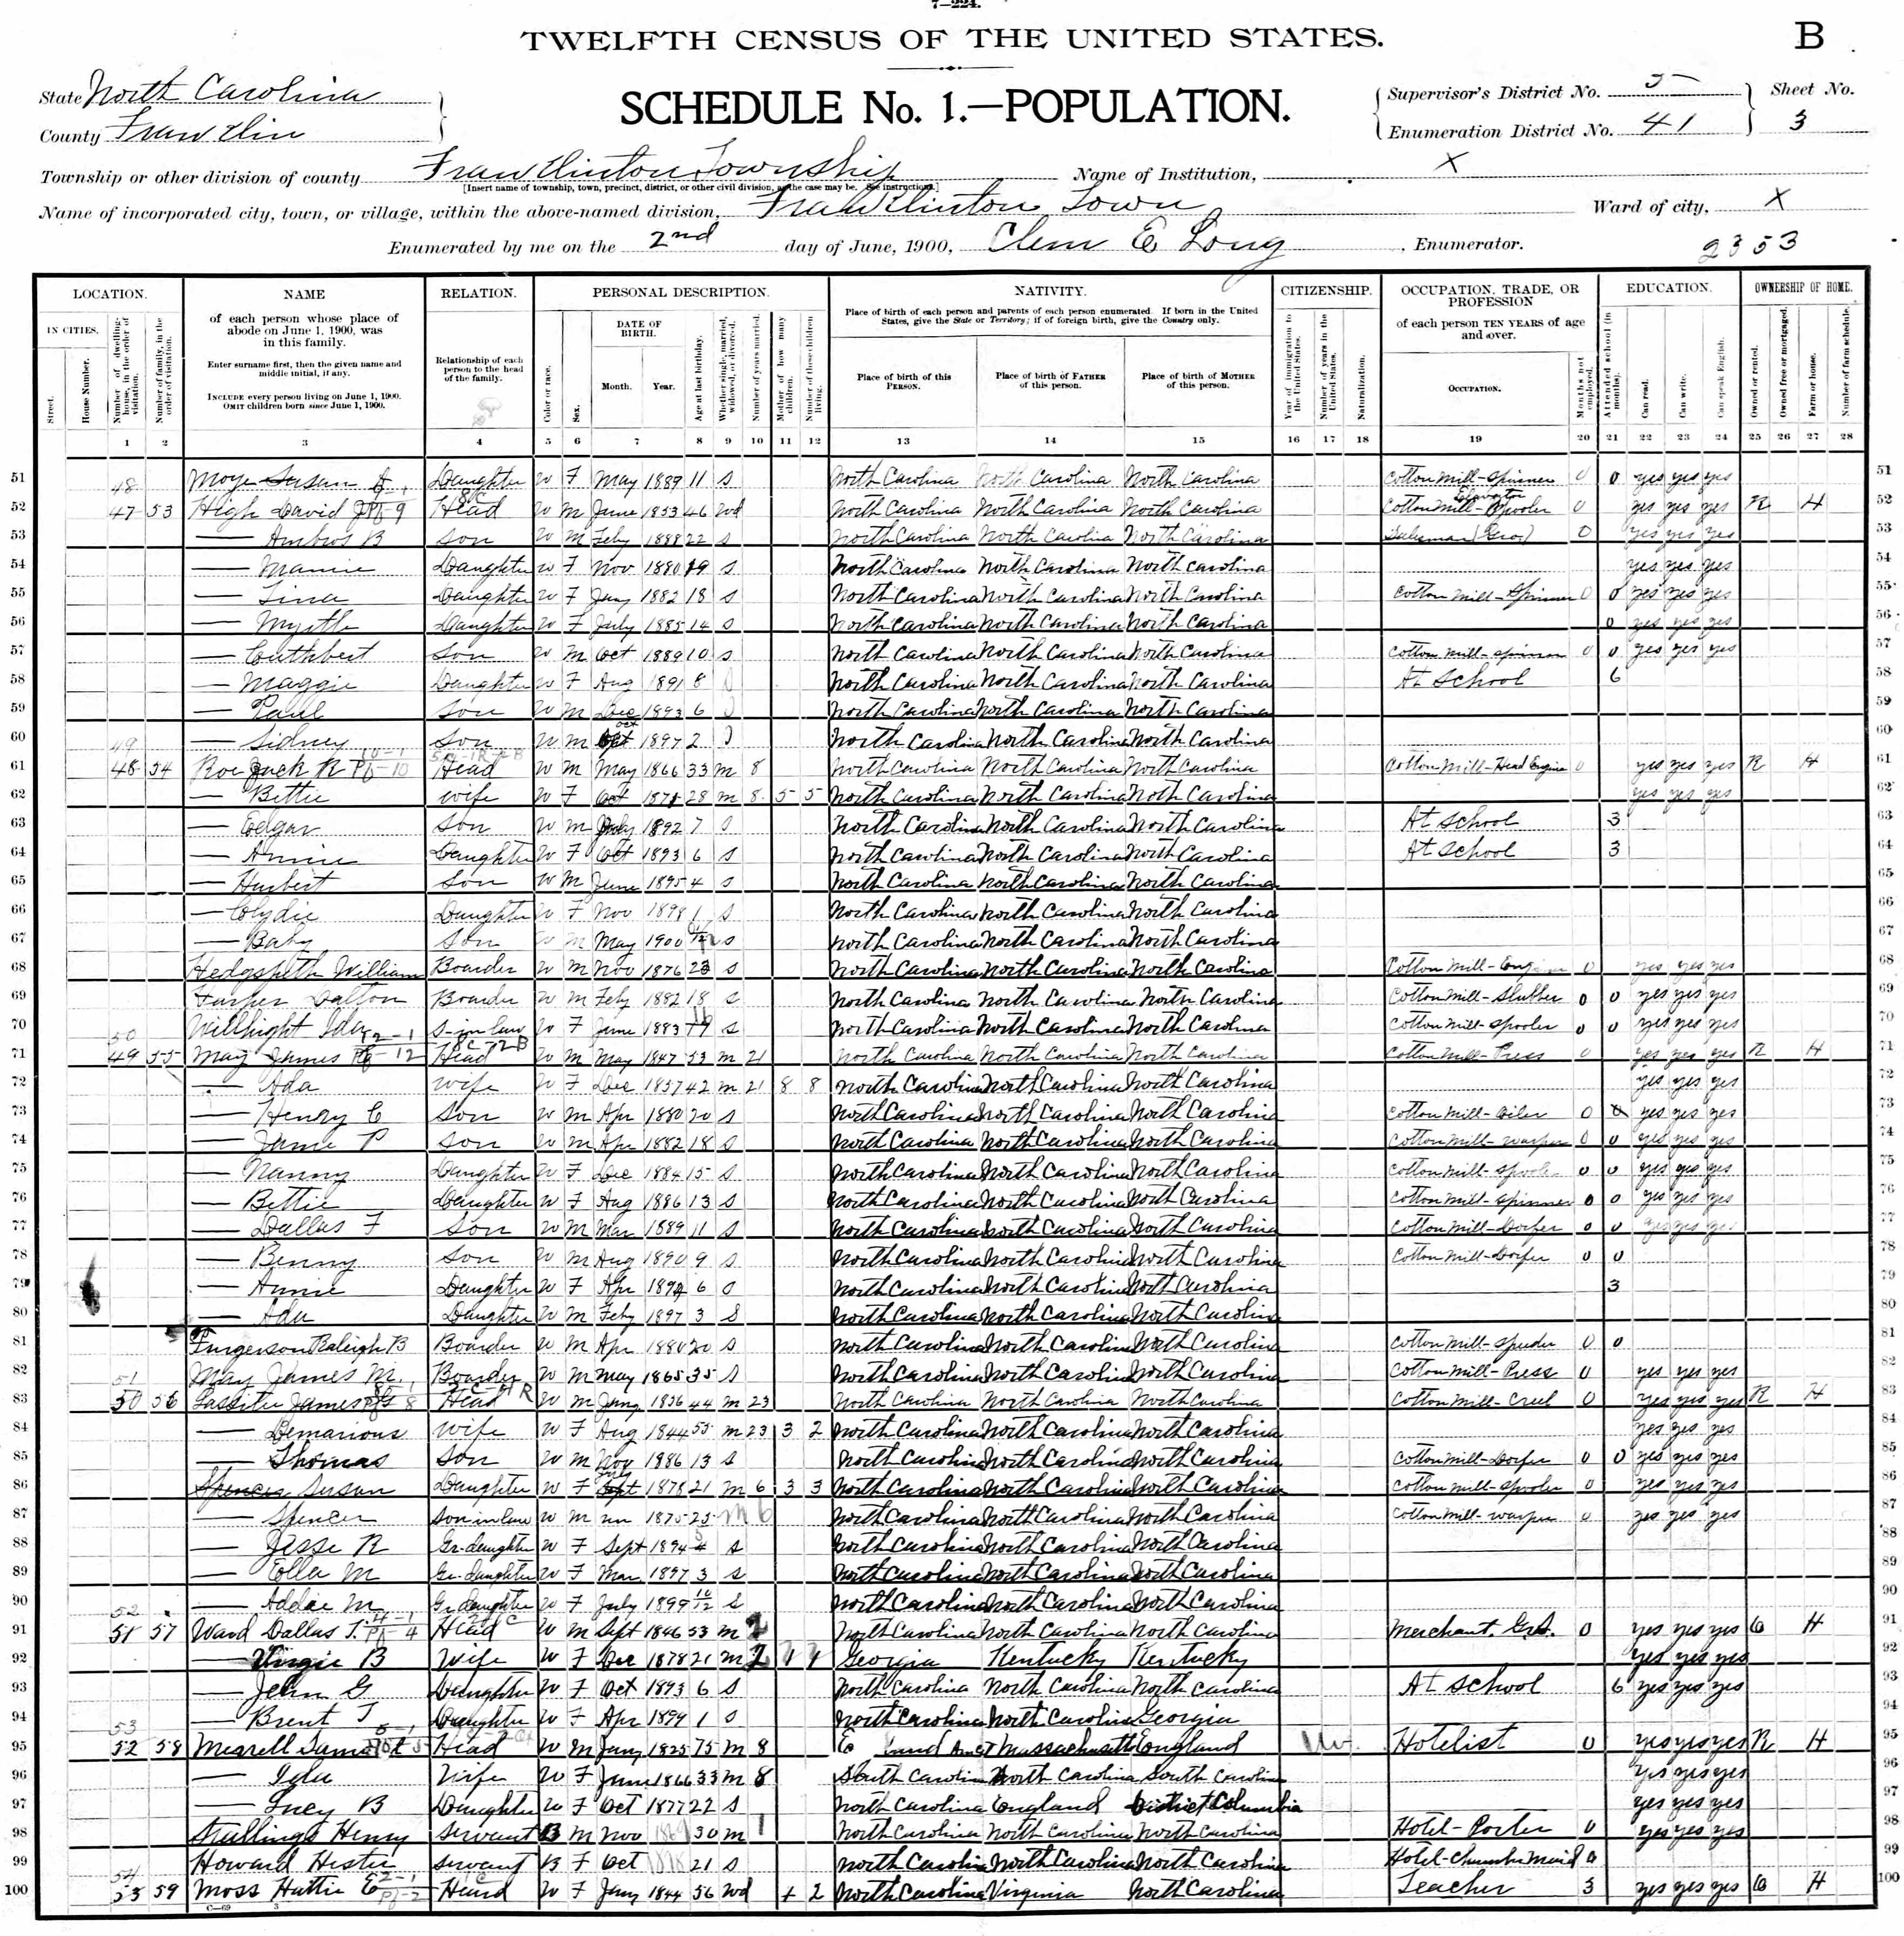 7—224.
TWELFTH CENSUS OF THE UNITED STATES.
B
State North Carolina
County Franklin
SCHEDULE No. 1.—POPULATION.
Supervisor's District No. 5
Enumeration District No. 41
Sheet No. 3
Township or other division of county Franklinton Township
Name of Institution, X
[Insert name of township, town, precinct, district, or other civil division, as the case may be. See instructions.]
Name of incorporated city, town, or village, within the above-named division, Franklinton Town
Ward of city, X
Enumerated by me on the 2nd day of June, 1900, Clem E Long, Enumerator.
2353
LOCATION. NAME RELATION. PERSONAL DESCRIPTION. NATIVITY. CITIZENSHIP. OCCUPATION, TRADE, OR PROFESSION EDUCATION. OWNERSHIP OF HOME.
IN CITIES. Street. House Number. Number of dwelling-house, in the order of visitation. Number of family, in the order of visitation.
of each person whose place of abode on June 1, 1900, was in this family.
Enter surname first, then the given name and middle initial, if any.
INCLUDE every person living on June 1, 1900. OMIT children born since June 1, 1900.
Relationship of each person to the head of the family.
Color or race. Sex. DATE OF BIRTH. Month. Year. Age at last birthday. Whether single, married, widowed, or divorced. Number of years married. Mother of how many children. Number of these children living.
Place of birth of each person and parents of each person enumerated. If born in the United States, give the State or Territory; if of foreign birth, give the Country only.
Place of birth of this PERSON. Place of birth of FATHER of this person. Place of birth of MOTHER of this person.
Year of immigration to the United States. Number of years in the United States. Naturalization.
of each person TEN YEARS of age and over.
OCCUPATION. Months not employed. Attended school (in months). Can read. Can write. Can speak English. Owned or rented. Owned free or mortgaged. Farm or house. Number of farm schedule.
1 2 3 4 5 6 7 8 9 10 11 12 13 14 15 16 17 18 19 20 21 22 23 24 25 26 27 28
51 Moye Susan A Daughter W F May 1889 11 S North Carolina North Carolina North Carolina Cotton Mill-Spinner 0 0 yes yes yes 51
52 47 53 High David Head W M June 1853 46 Wd North Carolina North Carolina North Carolina Cotton Mill- 0 yes yes yes R H 52
53 — Ambros B Son W M Feby 1888 22 S North Carolina North Carolina North Carolina Salesman (Gro) 0 yes yes yes 53
54 — Mamie Daughter W F Nov 1880 19 S North Carolina North Carolina North Carolina yes yes yes 54
55 — Lina Daughter W F Jany 1882 18 S North Carolina North Carolina North Carolina Cotton Mill-Spinner 0 0 yes yes yes 55
56 — Myrtle Daughter W F July 1885 14 S North Carolina North Carolina North Carolina 0 yes yes yes 56
57 — Cuthbert Son W M Oct 1889 10 S North Carolina North Carolina North Carolina Cotton Mill-Spinner 0 0 yes yes yes 57
58 — Maggie Daughter W F Aug 1891 8 North Carolina North Carolina North Carolina At School 6 58
59 — Paul Son W M Dec 1893 6 North Carolina North Carolina North Carolina 59
60 — Sidney Son W M Oct 1897 2 North Carolina North Carolina North Carolina 60
61 48 54 Roe Jack R Head W M May 1866 33 M 8 North Carolina North Carolina North Carolina Cotton Mill-Head Engine 0 yes yes yes R H 61
62 — Bettie Wife W F Oct 1871 28 M 8 5 5 North Carolina North Carolina Noth Carolina yes yes yes 62
63 — Edgar Son W M July 1892 7 S North Carolina North Carolina North Carolina At School 3 63
64 — Annie Daughter W F Oct 1893 6 S North Carolina North Carolina North Carolina At School 3 64
65 — Hurbert Son W M June 1895 4 S North Carolina North Carolina North Carolina 65
66 — Clydie Daughter W F Nov 1898 1 S North Carolina North Carolina North Carolina 66
67 — Baby Son W M May 1900 S North Carolina North Carolina North Carolina 67
68 Hedgspeth William Boarder W M Nov 1876 23 S North Carolina North Carolina North Carolina Cotton Mill-Engineer 0 yes yes yes 68
69 Harper Dalton Boarder W M Feby 1882 18 S North Carolina North Carolina North Carolina Cotton Mill-Slubber 0 0 yes yes yes 69
70 Willhight Ida S-in law W F June 1883 S North Carolina North Carolina North Carolina Cotton Mill-Spooler 0 0 yes yes yes 70
71 49 55 May James Head W M May 1847 53 M 21 North Carolina North Carolina North Carolina Cotton Mill-Press 0 yes yes yes R H 71
72 — Ada Wife W F Dec 1857 42 M 21 8 8 North Carolina North Carolina North Carolina yes yes yes 72
73 — Henry C Son W M Apr 1880 20 S North Carolina North Carolina North Carolina Cotton Mill-Oiler 0 0 yes yes yes 73
74 — Jamie P Son W M Apr 1882 18 S North Carolina North Carolina North Carolina Cotton Mill-Warper 0 0 yes yes yes 74
75 — Nanny Daughter W F Dec 1884 15 S North Carolina North Carolina North Carolina Cotton Mill-Spooler 0 0 yes yes yes 75
76 — Bettie Daughter W F Aug 1886 13 S North Carolina North Carolina North Carolina Cotton Mill-Spinner 0 0 yes yes yes 76
77 — Dallas F Son W M Mar 1889 11 S North Carolina North Carolina North Carolina Cotton Mill-Dorfer 0 0 yes yes yes 77
78 — Benny Son W M Aug 1890 9 S North Carolina North Carolina North Carolina Cotton Mill-Dorfer 0 0 78
79 — Annie Daughter W F Apr 1894 6 S North Carolina North Carolina North Carolina 3 79
80 — Ada Daughter W M Feby 1897 3 S North Carolina North Carolina North Carolina 80
81 Furgerson Raleigh B Boarder W M Apr 1880 20 S North Carolina North Carolina North Carolina Cotton Mill-Speeder 0 0 81
82 May James M. Boarder W M May 1865 35 S North Carolina North Carolina North Carolina Cotton Mill-Press 0 yes yes yes 82
83 50 56 Lassiter James Head W M Jany 1856 44 M 23 North Carolina North Carolina North Carolina Cotton Mill-Creel 0 yes yes yes R H 83
84 — Demarious Wife W F Aug 1844 55 M 23 3 2 North Carolina North Carolina North Carolina yes yes yes 84
85 — Thomas Son W M Nov 1886 13 S North Carolina North Carolina North Carolina Cotton Mill-Dorfer 0 0 yes yes yes 85
86 Spencer Susan Daughter W F July 1878 21 M 6 3 3 North Carolina North Carolina North Carolina Cotton Mill-Spooler 0 yes yes yes 86
87 — Spencer Son in law W M un 1875 25 M 6 North Carolina North Carolina North Carolina Cotton Mill-Warper 0 yes yes yes 87
88 — Jesse R Gr-daughter W F Sept 1894 S North Carolina North Carolina North Carolina 88
89 — Ella M Gr-daughter W F Mar 1897 3 S North Carolina North Carolina North Carolina 89
90 — Addie M Gr daughter W F July 1899 10/12 S North Carolina North Carolina North Carolina 90
91 51 57 Ward Dallas T. Head W M Sept 1846 53 M 2 North Carolina North Carolina North Carolina Merchant. Gro. 0 yes yes yes O H 91
92 — Virgie B Wife W F Dec 1878 21 M 2 1 1 Georgia Kentucky Kentucky yes yes yes 92
93 — G Daughter W F Oct 1893 6 S North Carolina North Carolina North Carolina At School 6 yes yes yes 93
94 — Brent T Daughter W F Apr 1899 1 S North Carolina North Carolina Georgia 94
95 52 58 Merrell Head W M Jany 1825 75 M 8 Massachusetts England Hotelist 0 yes yes yes R H 95
96 — Iola Wife W F June 1866 33 M 8 South Carolina North Carolina South Carolina yes yes yes 96
97 — Lucy B Daughter W F Oct 1877 22 S North Carolina England District Columbia yes yes yes 97
98 Stallings Henry Servant B M Nov 1869 30 M 1 North Carolina North Carolina North Carolina Hotel-Porter 0 yes yes yes 98
99 Howard Hester Servant B F Oct 1878 21 S North Carolina North Carolina North Carolina Hotel-Chamber Maid 0 99
100 53 59 Moss Hattie E Head W F Jany 1844 56 Wd 2 North Carolina Virginia North Carolina Teacher 3 yes yes yes O H 100